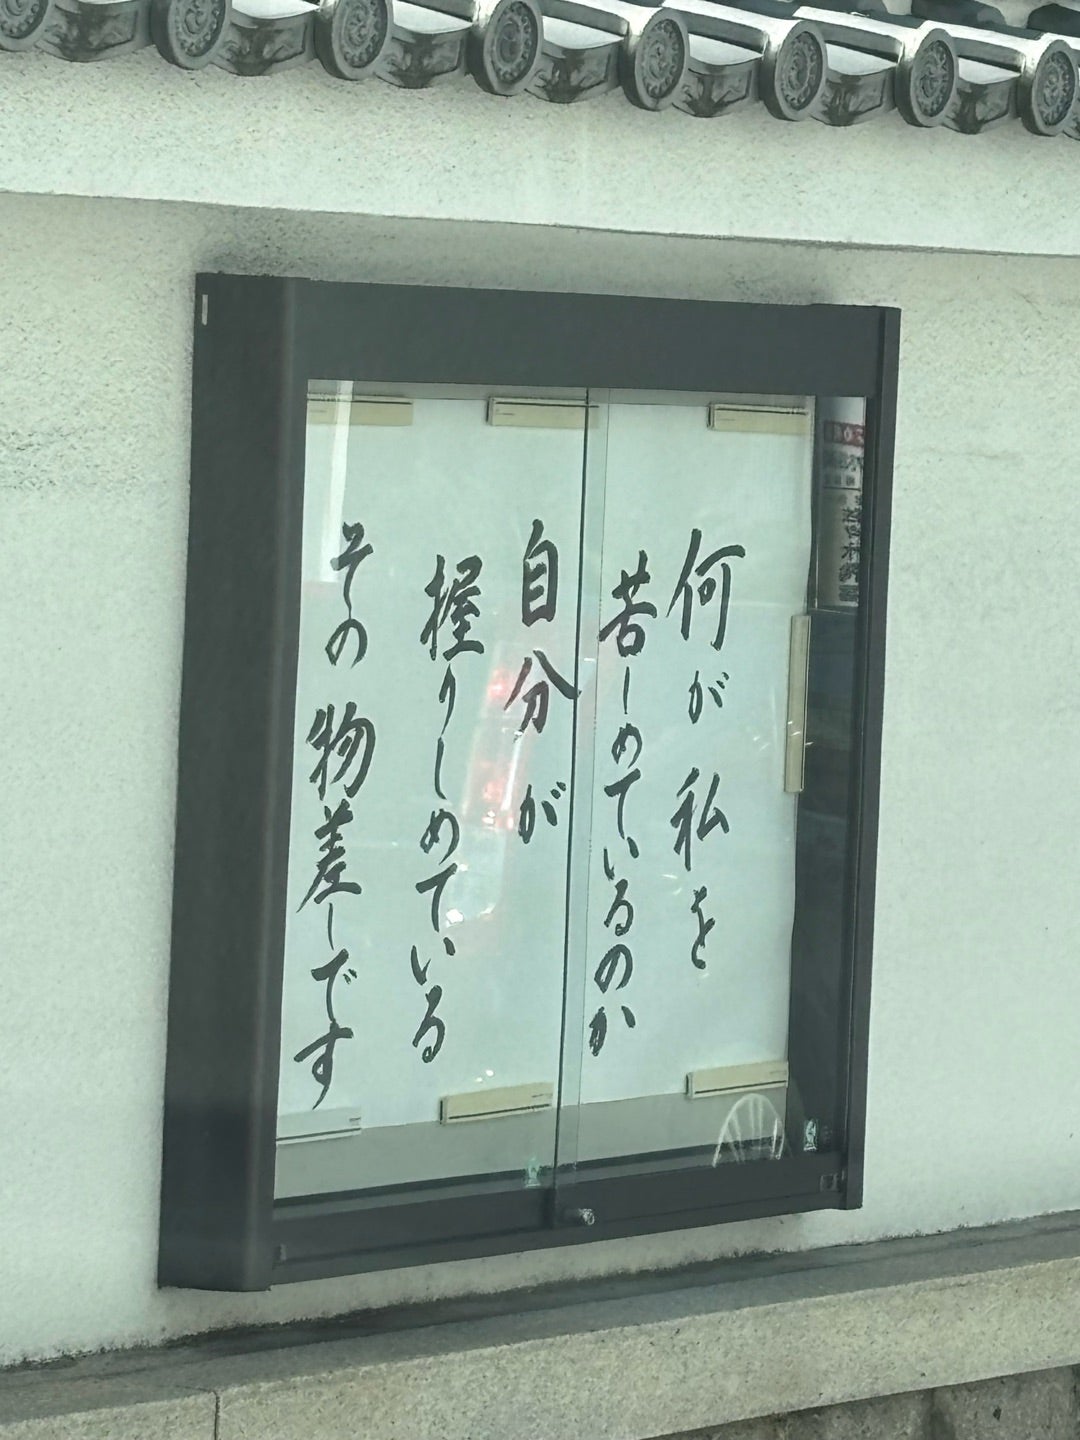 何が私を
苦しめているのか
自分が
握りしめている
その物差しです